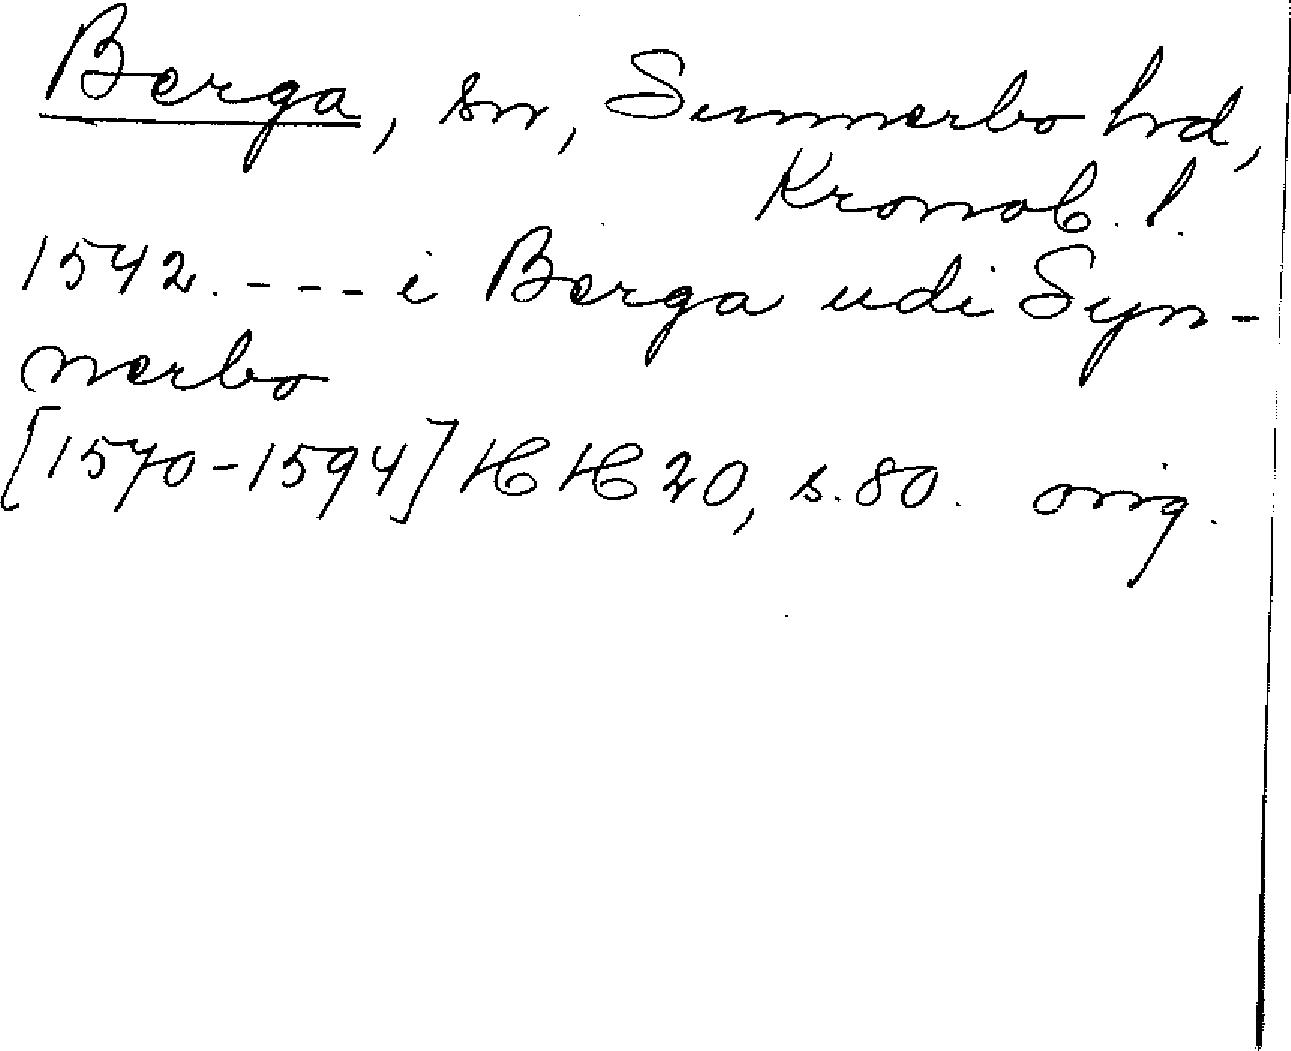 Berga, sn, Sunnerbo hrd,
Kronob. l.
1542. - - - i Berga udi Syn-
nerbo
[1570-1594] HH 20, s. 80. orig.